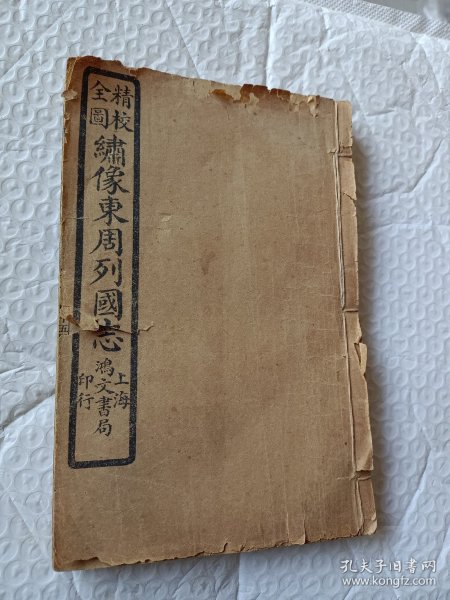 精校
全圖
繡像東周列國志
上海
鴻文書局
印行
五
孔夫子旧书网
www.kongfz.com